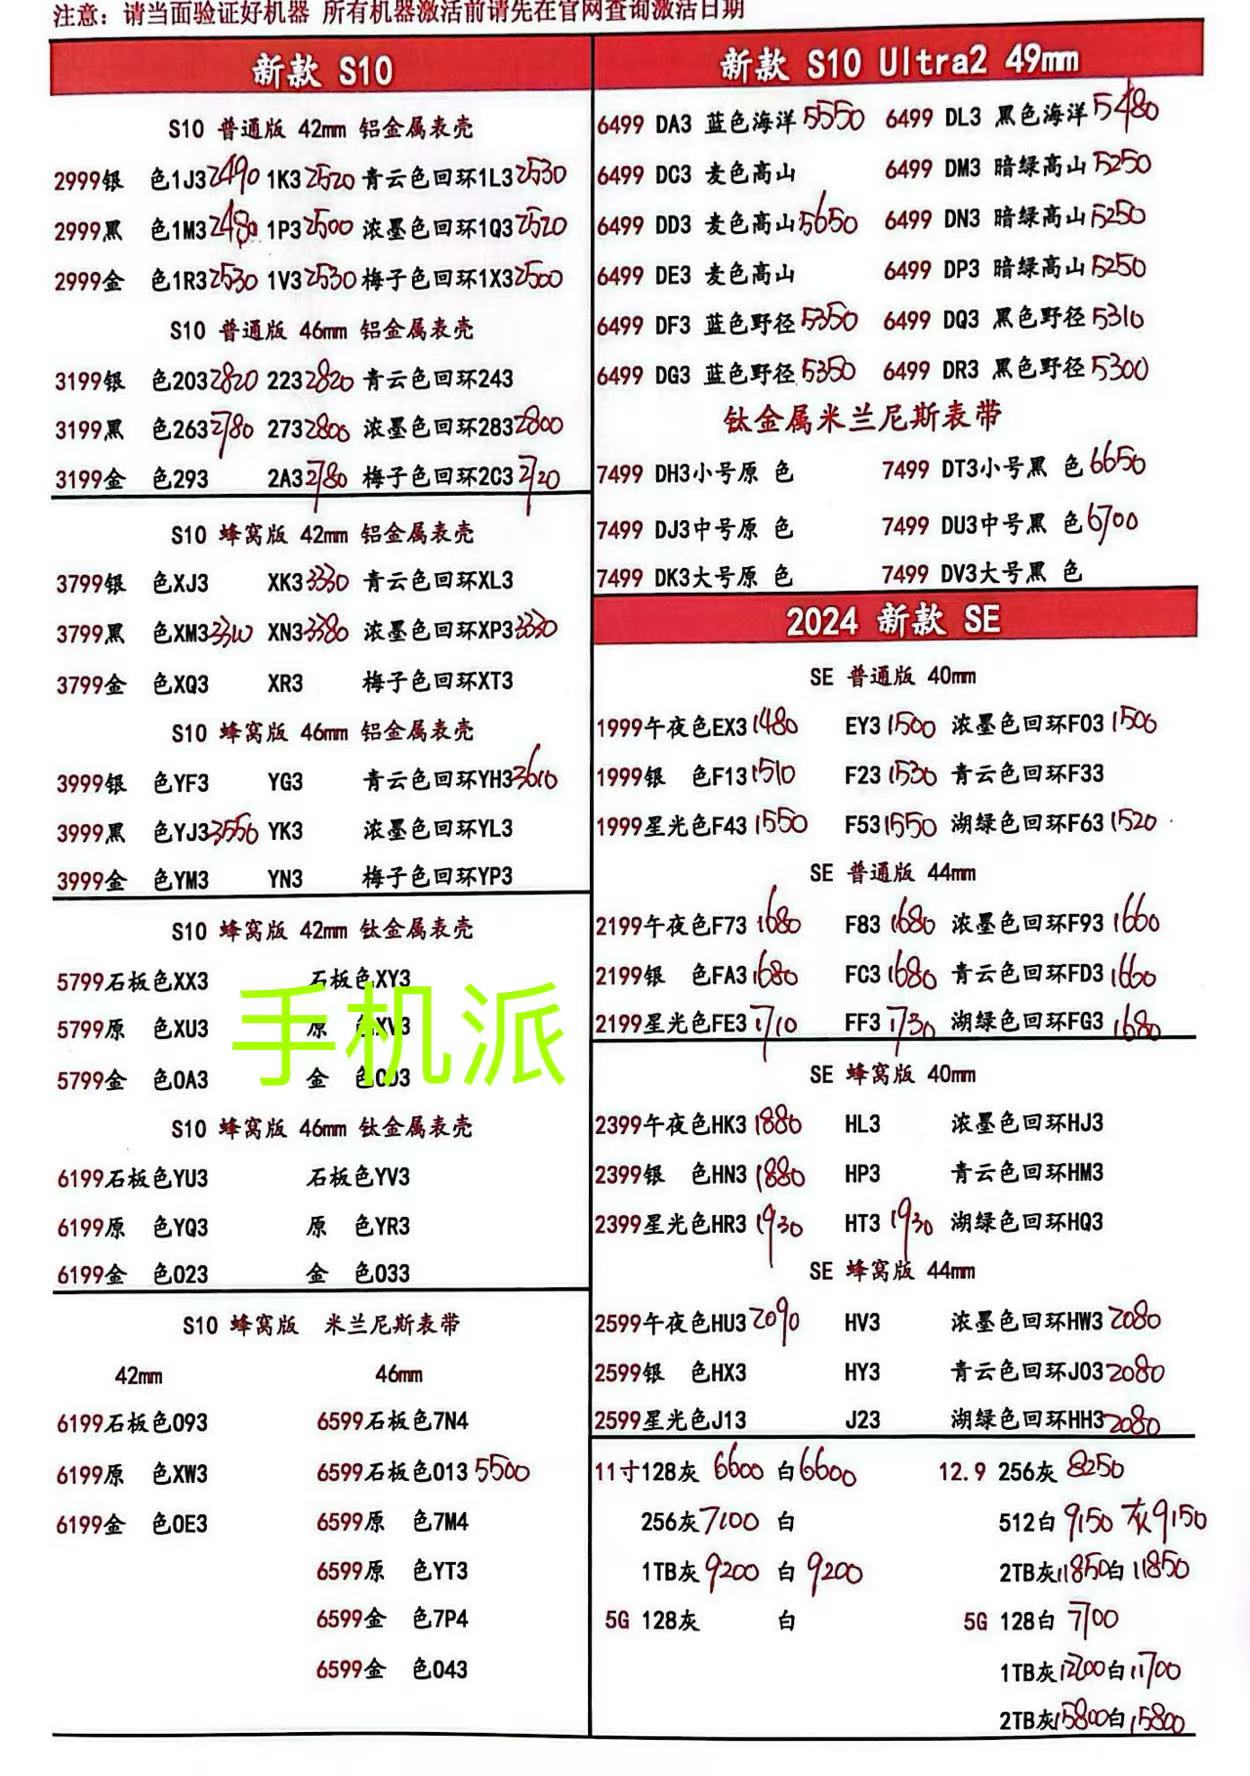 注意：请当面验证好机器 所有机器激活前请先在官网查询激活日期
新款 S10
S10 普通版 42mm 铝金属表壳
2999银 色1J3 2490 1K3 2520 青云色回环1L3 2530
2999黑 色1M3 2480 1P3 2500 浓墨色回环1Q3 2520
2999金 色1R3 2530 1V3 2530 梅子色回环1X3 2500
S10 普通版 46mm 铝金属表壳
3199银 色203 2820 223 2820 青云色回环243
3199黑 色263 2780 273 2800 浓墨色回环283 2800
3199金 色293 2A3 2780 梅子色回环2C3 2720
S10 蜂窝版 42mm 铝金属表壳
3799银 色XJ3 XK3 3330 青云色回环XL3
3799黑 色XM3 3310 XN3 3380 浓墨色回环XP3 3330
3799金 色XQ3 XR3 梅子色回环XT3
S10 蜂窝版 46mm 铝金属表壳
3999银 色YF3 YG3 青云色回环YH3 3610
3999黑 色YJ3 3550 YK3 浓墨色回环YL3
3999金 色YM3 YN3 梅子色回环YP3
S10 蜂窝版 42mm 钛金属表壳
5799石板色XX3 石板色XY3
5799原 色XU3 原 色XV3
5799金 色0A3 金 色0D3
手机派
S10 蜂窝版 46mm 钛金属表壳
6199石板色YU3 石板色YV3
6199原 色YQ3 原 色YR3
6199金 色023 金 色033
S10 蜂窝版 米兰尼斯表带
42mm 46mm
6199石板色093 6599石板色7N4
6199原 色XW3 6599石板色013 5500
6199金 色0E3 6599原 色7M4
6599原 色YT3
6599金 色7P4
6599金 色043
新款 S10 Ultra2 49mm
6499 DA3 蓝色海洋 5550 6499 DL3 黑色海洋 5480
6499 DC3 麦色高山 6499 DM3 暗绿高山 5250
6499 DD3 麦色高山 5650 6499 DN3 暗绿高山 5250
6499 DE3 麦色高山 6499 DP3 暗绿高山 5250
6499 DF3 蓝色野径 5350 6499 DQ3 黑色野径 5310
6499 DG3 蓝色野径 5350 6499 DR3 黑色野径 5300
钛金属米兰尼斯表带
7499 DH3小号原 色 7499 DT3小号黑 色 6650
7499 DJ3中号原 色 7499 DU3中号黑 色 6700
7499 DK3大号原 色 7499 DV3大号黑 色
2024 新款 SE
SE 普通版 40mm
1999午夜色EX3 1480 EY3 1500 浓墨色回环F03 1500
1999银 色F13 1510 F23 1530 青云色回环F33
1999星光色F43 1550 F53 1550 湖绿色回环F63 1520
SE 普通版 44mm
2199午夜色F73 1680 F83 1680 浓墨色回环F93 1660
2199银 色FA3 1680 FC3 1680 青云色回环FD3 1660
2199星光色FE3 1710 FF3 1730 湖绿色回环FG3 1680
SE 蜂窝版 40mm
2399午夜色HK3 1880 HL3 浓墨色回环HJ3
2399银 色HN3 1880 HP3 青云色回环HM3
2399星光色HR3 1930 HT3 1930 湖绿色回环HQ3
SE 蜂窝版 44mm
2599午夜色HU3 2090 HV3 浓墨色回环HW3 2080
2599银 色HX3 HY3 青云色回环J03 2080
2599星光色J13 J23 湖绿色回环HH3 2080
11寸128灰 6600 白 6600 12.9 256灰 8250
256灰 7100 白 512白 9150 灰 9150
1TB灰 9200 白 9200 2TB灰 11850 白 11850
5G 128灰 白 5G 128白 7700
1TB灰 12700 白 11700
2TB灰 15800 白 15800